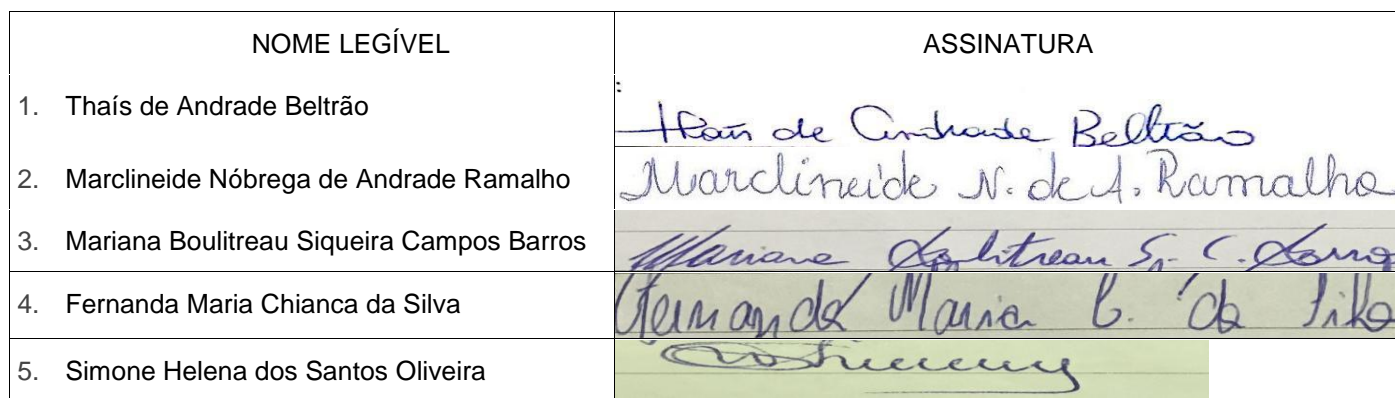 NOME LEGÍVEL ASSINATURA
1. Thaís de Andrade Beltrão Thaís de Andrade Beltrão
2. Marclineide Nóbrega de Andrade Ramalho Marclineide N. de A. Ramalho
3. Mariana Boulitreau Siqueira Campos Barros Mariana Boulitreau S. C. Barros
4. Fernanda Maria Chianca da Silva Fernanda Maria C. da Silva
5. Simone Helena dos Santos Oliveira